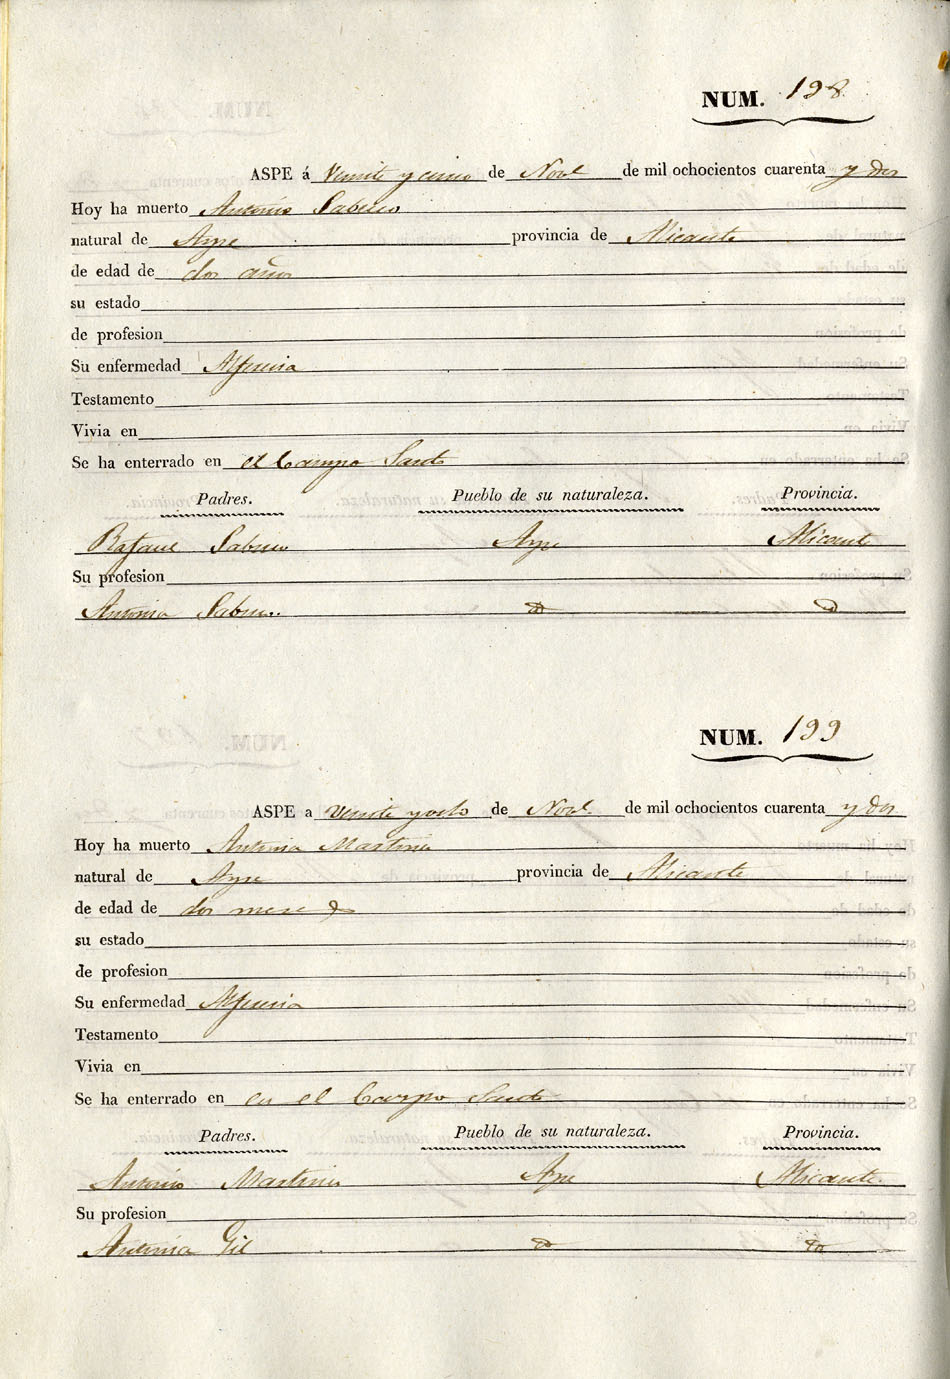 NUM. 198
ASPE á Veinte y cinco de Nobe de mil ochocientos cuarenta y dos
Hoy ha muerto Antonio Sabuco
natural de Aspe provincia de Alicante
de edad de dos años
su estado
de profesion
Su enfermedad Alferecia
Testamento
Vivia en
Se ha enterrado en el Campo Santo
Padres. Pueblo de su naturaleza. Provincia.
Rafael Sabuco Aspe Alicante
Su profesion
Antonia
NUM. 199
ASPE a Veinte y ocho de Nobe de mil ochocientos cuarenta y dos
Hoy ha muerto Antonia Martinez
natural de Aspe provincia de Alicante
de edad de dos mese
su estado
de profesion
Su enfermedad Alferecia
Testamento
Vivia en
Se ha enterrado en en el Campo Santo
Padres. Pueblo de su naturaleza. Provincia.
Antonio Martinez Aspe Alicante
Su profesion
Antonia Gil